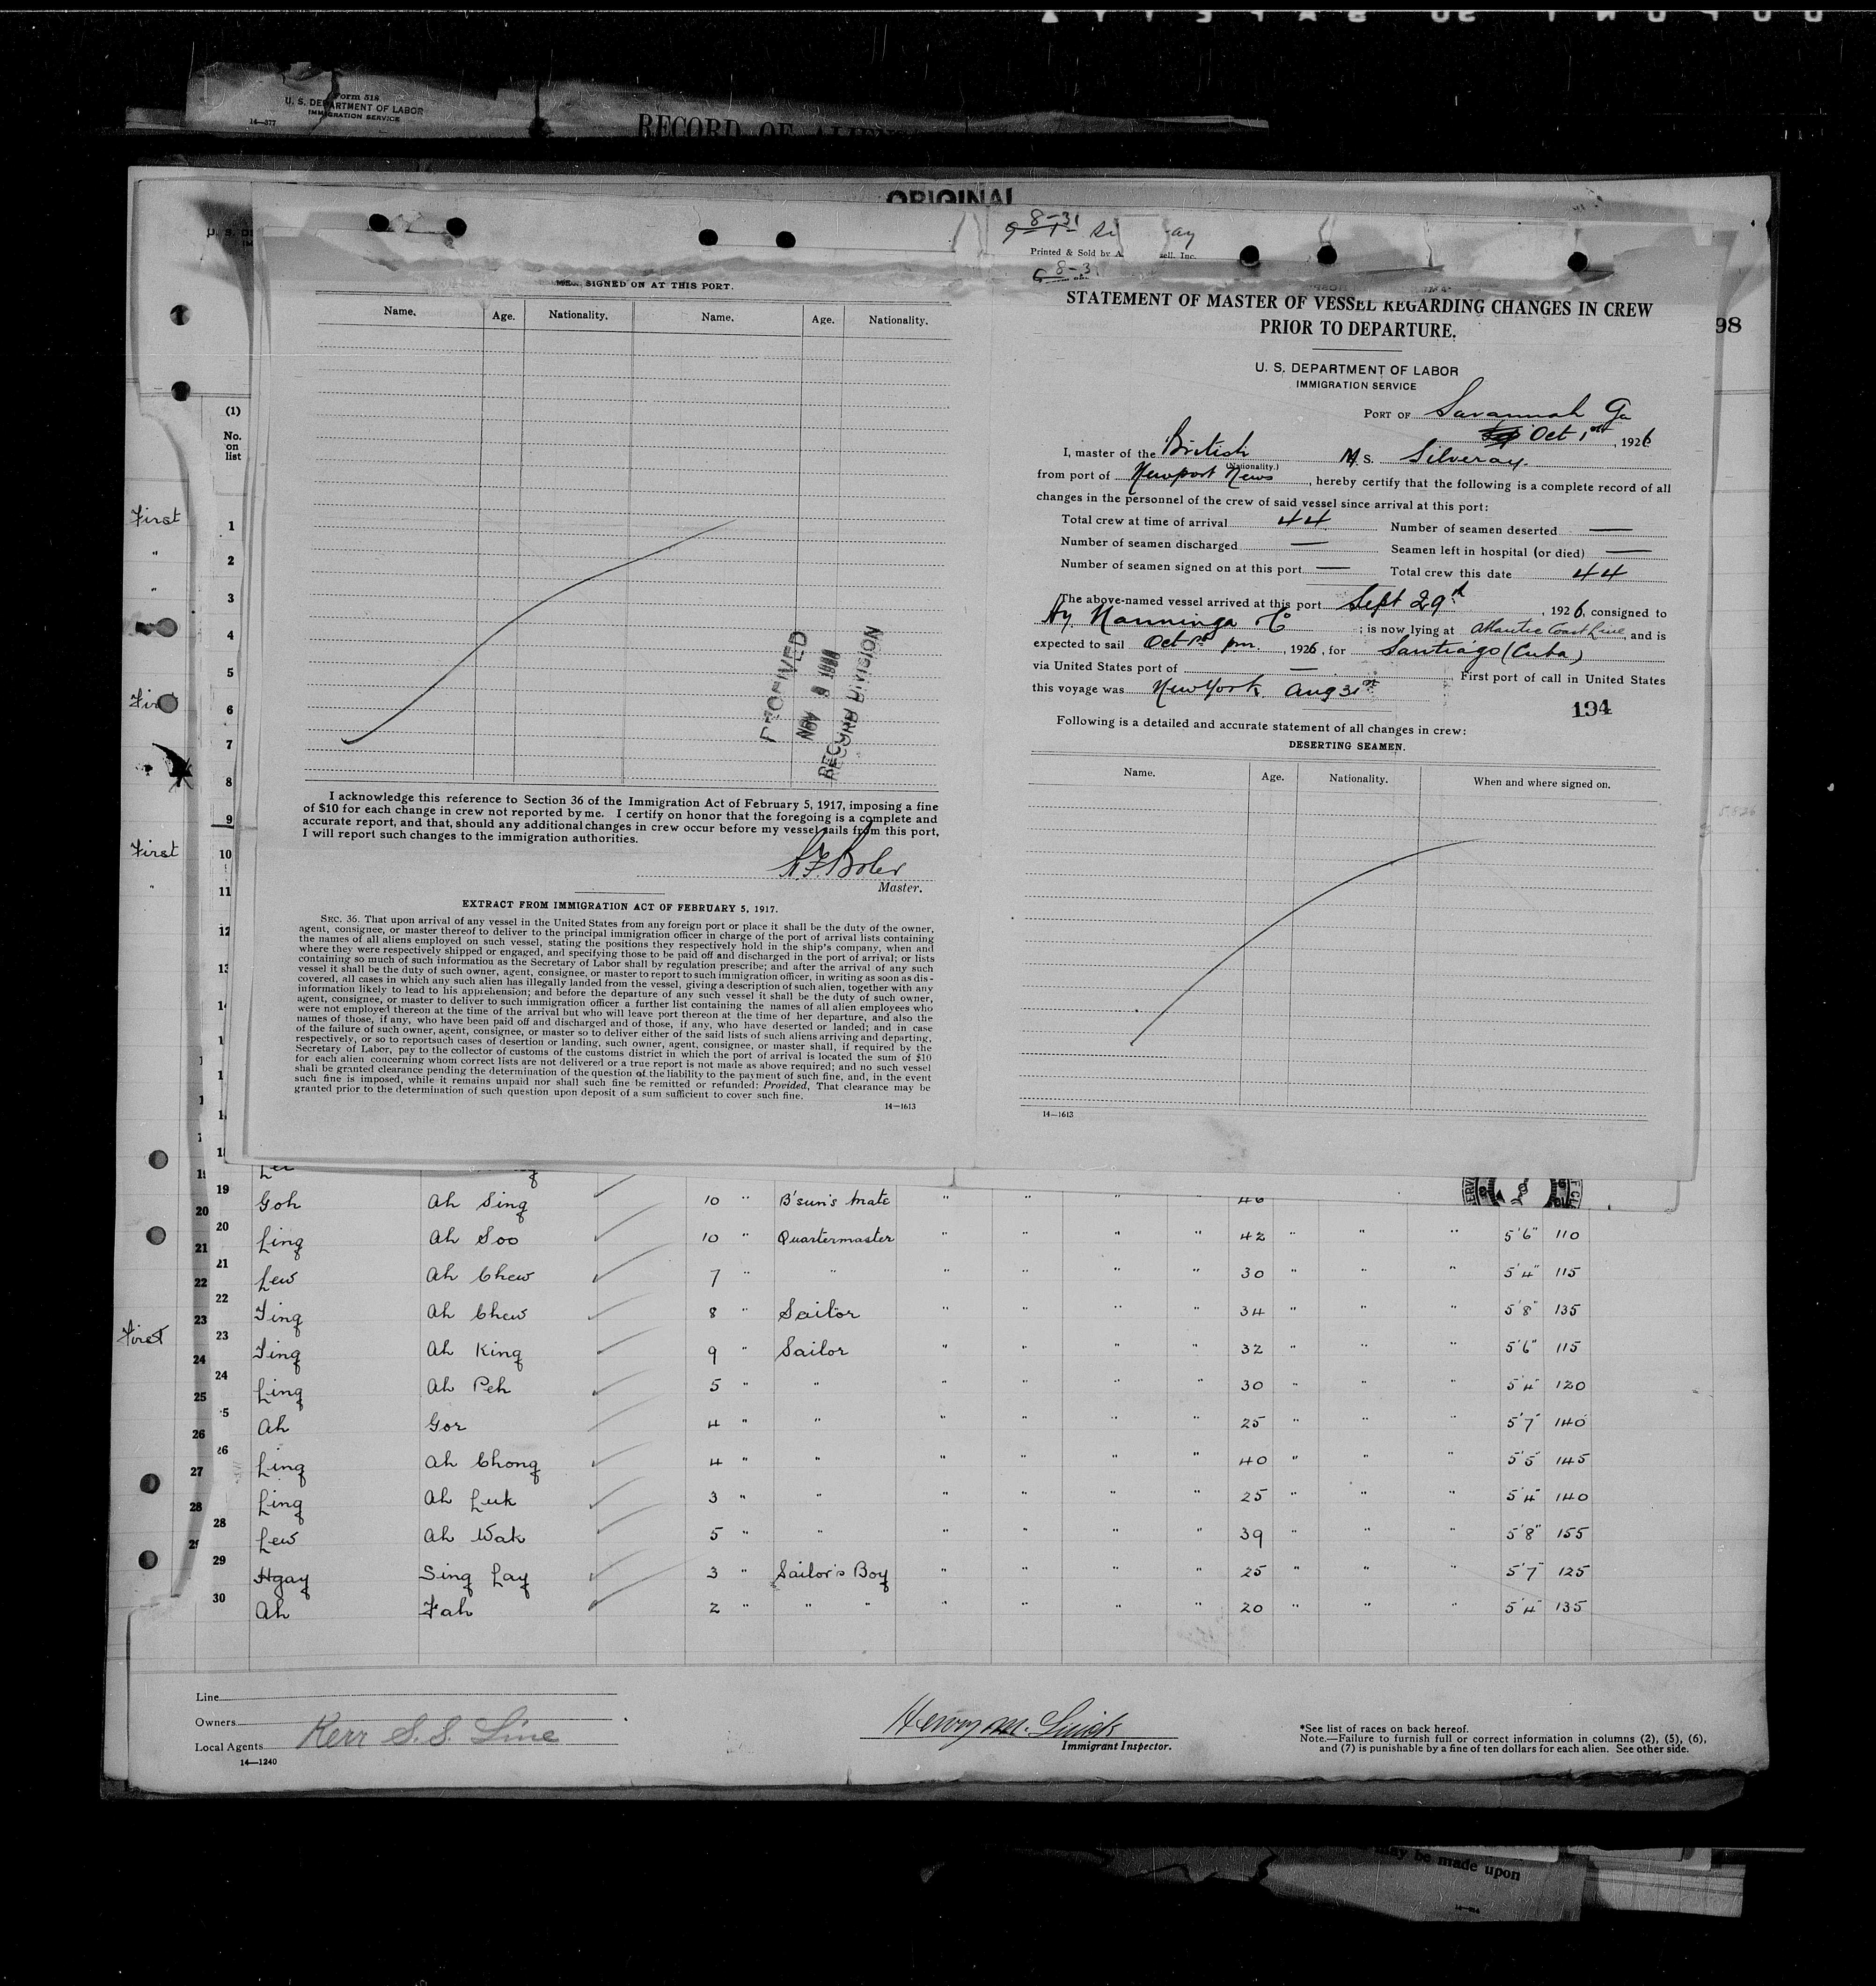 Form 518
U. S. DEPARTMENT OF LABOR
IMMIGRATION SERVICE
14—377
RECORD OF ALIEN
ORIGINAL
8-31
Printed & Sold by
8-31
98
(1)
No.
on
list
First
"
"
First
First
First
1
2
3
4
5
6
7
8
9
10
11
SIGNED ON AT THIS PORT.
Name. Age. Nationality. Name. Age. Nationality.
NOV
RECORD DIVISION
I acknowledge this reference to Section 36 of the Immigration Act of February 5, 1917, imposing a fine
of $10 for each change in crew not reported by me. I certify on honor that the foregoing is a complete and
accurate report, and that, should any additional changes in crew occur before my vessel sails from this port,
I will report such changes to the immigration authorities.
Master.
EXTRACT FROM IMMIGRATION ACT OF FEBRUARY 5, 1917.
SEC. 36. That upon arrival of any vessel in the United States from any foreign port or place it shall be the duty of the owner,
agent, consignee, or master thereof to deliver to the principal immigration officer in charge of the port of arrival lists containing
the names of all aliens employed on such vessel, stating the positions they respectively hold in the ship's company, when and
where they were respectively shipped or engaged, and specifying those to be paid off and discharged in the port of arrival; or lists
containing so much of such information as the Secretary of Labor shall by regulation prescribe; and after the arrival of any such
vessel it shall be the duty of such owner, agent, consignee, or master to report to such immigration officer, in writing as soon as dis-
covered, all cases in which any such alien has illegally landed from the vessel, giving a description of such alien, together with any
information likely to lead to his apprehension; and before the departure of any such vessel it shall be the duty of such owner,
agent, consignee, or master to deliver to such immigration officer a further list containing the names of all alien employees who
were not employed thereon at the time of the arrival but who will leave port thereon at the time of her departure, and also the
names of those, if any, who have been paid off and discharged and of those, if any, who have deserted or landed; and in case
of the failure of such owner, agent, consignee, or master so to deliver either of the said lists of such aliens arriving and departing,
respectively, or so to report such cases of desertion or landing, such owner, agent, consignee, or master shall, if required by the
Secretary of Labor, pay to the collector of customs of the customs district in which the port of arrival is located the sum of $10
for each alien concerning whom correct lists are not delivered or a true report is not made as above required; and no such vessel
shall be granted clearance pending the determination of the question of the liability to the payment of such fine, and, in the event
such fine is imposed, while it remains unpaid nor shall such fine be remitted or refunded: Provided, That clearance may be
granted prior to the determination of such question upon deposit of a sum sufficient to cover such fine.
14—1613
STATEMENT OF MASTER OF VESSEL REGARDING CHANGES IN CREW
PRIOR TO DEPARTURE.
U. S. DEPARTMENT OF LABOR
IMMIGRATION SERVICE
PORT OF Savannah Ga
Oct 1st, 1926
I, master of the British M. S. Silveray.
(Nationality.)
from port of Newport News, hereby certify that the following is a complete record of all
changes in the personnel of the crew of said vessel since arrival at this port:
Total crew at time of arrival 44 Number of seamen deserted —
Number of seamen discharged — Seamen left in hospital (or died) —
Number of seamen signed on at this port — Total crew this date 44
The above-named vessel arrived at this port Sept 29th, 1926, consigned to
Hy. Nanninga & Co; is now lying at Atlantic Coast Line, and is
expected to sail Oct 1st pm., 1926, for Santiago (Cuba)
via United States port of —. First port of call in United States
this voyage was New York Aug 31st
194
Following is a detailed and accurate statement of all changes in crew:
DESERTING SEAMEN.
Name. Age. Nationality. When and where signed on.
14—1613
19 Goh Ah Sing 10 " B'sun's Mate " " " " 46
20 Ling Ah Soo 10 " Quartermaster " " " " 42 " " " 5'6" 110
21 Lew Ah Chew 7 " " " " " " 30 " " " 5'4" 115
22 Ting Ah Chew 8 " Sailor " " " " 34 " " " 5'8" 135
23 Ting Ah King 9 " Sailor " " " " 32 " " " 5'6" 115
24 Ling Ah Peh 5 " " " " " " 30 " " " 5'4" 120
25 Ah Gor 4 " " " " " " 25 " " " 5'7" 140
26 Ling Ah Chong 4 " " " " " " 40 " " " 5'5" 145
Ling Ah Luk 3 " " " " " " 25 " " " 5'4" 140
28 Lew Ah Wak 5 " " " " " " 39 " " " 5'8" 155
29 Hgay Sing Lay 3 " Sailor's Boy " " " " 25 " " " 5'7" 125
30 Ah Fah 2 " " " " " " " 20 " " " 5'4" 135
Line
Owners
Local Agents Kerr S.S. Line
14—1240
Immigrant Inspector.
*See list of races on back hereof.
Note.—Failure to furnish full or correct information in columns (2), (5), (6),
and (7) is punishable by a fine of ten dollars for each alien. See other side.
may be made upon